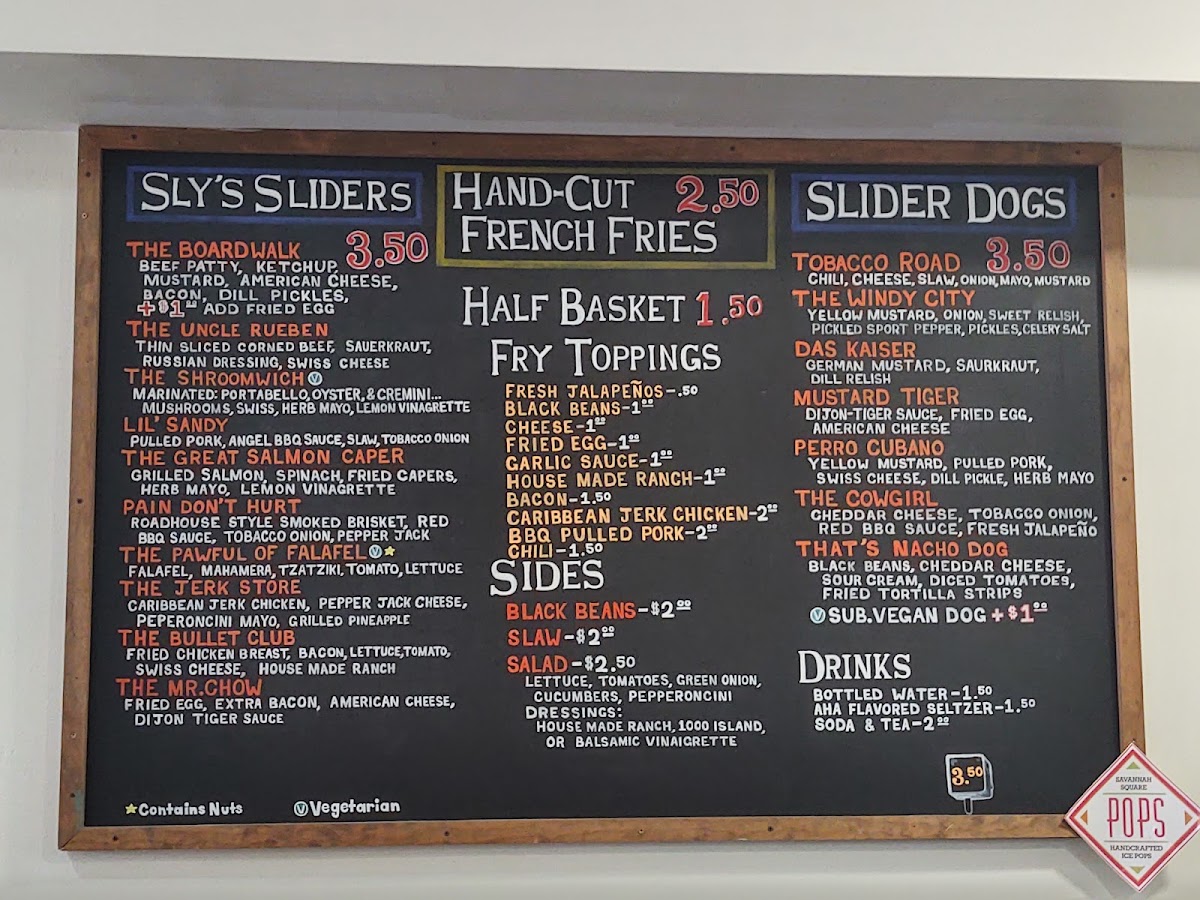 SLY'S SLIDERS
THE BOARDWALK 3.50
BEEF PATTY, KETCHUP,
MUSTARD, AMERICAN CHEESE,
BACON, DILL PICKLES,
+$1.00 ADD FRIED EGG
THE UNCLE RUEBEN
THIN SLICED CORNED BEEF, SAUERKRAUT,
RUSSIAN DRESSING, SWISS CHEESE
THE SHROOMWICH Ⓥ
MARINATED: PORTABELLO, OYSTER, & CREMINI...
MUSHROOMS, SWISS, HERB MAYO, LEMON VINAGRETTE
LIL' SANDY
PULLED PORK, ANGEL BBQ SAUCE, SLAW, TOBACCO ONION
THE GREAT SALMON CAPER
GRILLED SALMON, SPINACH, FRIED CAPERS,
HERB MAYO, LEMON VINAGRETTE
PAIN DON'T HURT
ROADHOUSE STYLE SMOKED BRISKET, RED
BBQ SAUCE, TOBACCO ONION, PEPPER JACK
THE PAWFUL OF FALAFEL Ⓥ★
FALAFEL, MAHAMERA, TZATZIKI, TOMATO, LETTUCE
THE JERK STORE
CARIBBEAN JERK CHICKEN, PEPPER JACK CHEESE,
PEPERONCINI MAYO, GRILLED PINEAPPLE
THE BULLET CLUB
FRIED CHICKEN BREAST, BACON, LETTUCE, TOMATO,
SWISS CHEESE, HOUSE MADE RANCH
THE MR. CHOW
FRIED EGG, EXTRA BACON, AMERICAN CHEESE,
DIJON TIGER SAUCE
★Contains Nuts
ⓋVegetarian
HAND-CUT 2.50
FRENCH FRIES
HALF BASKET 1.50
FRY TOPPINGS
FRESH JALAPEÑOS-.50
BLACK BEANS-1.00
CHEESE-1.00
FRIED EGG-1.00
GARLIC SAUCE-1.00
HOUSE MADE RANCH-1.00
BACON-1.50
CARIBBEAN JERK CHICKEN-2.00
BBQ PULLED PORK-2.00
CHILI-1.50
SIDES
BLACK BEANS-$2.00
SLAW-$2.00
SALAD-$2.50
LETTUCE, TOMATOES, GREEN ONION,
CUCUMBERS, PEPPERONCINI
DRESSINGS:
HOUSE MADE RANCH, 1000 ISLAND,
OR BALSAMIC VINAIGRETTE
SLIDER DOGS
TOBACCO ROAD 3.50
CHILI, CHEESE, SLAW, ONION, MAYO, MUSTARD
THE WINDY CITY
YELLOW MUSTARD, ONION, SWEET RELISH,
PICKLED SPORT PEPPER, PICKLES, CELERY SALT
DAS KAISER
GERMAN MUSTARD, SAURKRAUT,
DILL RELISH
MUSTARD TIGER
DIJON-TIGER SAUCE, FRIED EGG,
AMERICAN CHEESE
PERRO CUBANO
YELLOW MUSTARD, PULLED PORK,
SWISS CHEESE, DILL PICKLE, HERB MAYO
THE COWGIRL
CHEDDAR CHEESE, TOBACCO ONION,
RED BBQ SAUCE, FRESH JALAPEÑO
THAT'S NACHO DOG
BLACK BEANS, CHEDDAR CHEESE,
SOUR CREAM, DICED TOMATOES,
FRIED TORTILLA STRIPS
Ⓥ SUB. VEGAN DOG +$1.00
DRINKS
BOTTLED WATER-1.50
AHA FLAVORED SELTZER-1.50
SODA & TEA-2.00
3.50
SAVANNAH
SQUARE
POPS
HANDCRAFTED
ICE POPS